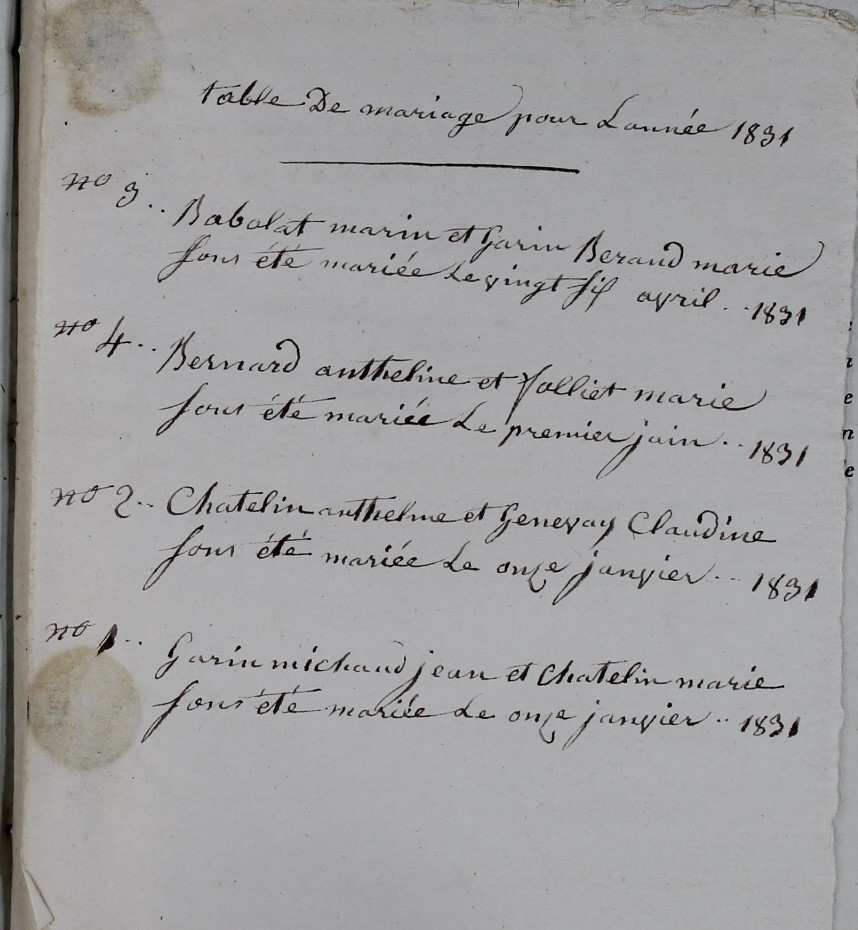 table De mariage pour Lannée 1831
no 3.. Babolat marin et Garin Beraud marie
sous été mariée Le vingt six avril .. 1831
no 4.. Bernard anthelme et Jolliet marie
sous été mariée Le premier juin .. 1831
no 2.. Chatelin anthelme et Genevay Claudine
sous été mariée Le onze janvier .. 1831
no 1.. Garin michaud jean et Chatelin marie
sous été mariée Le onze janvier .. 1831